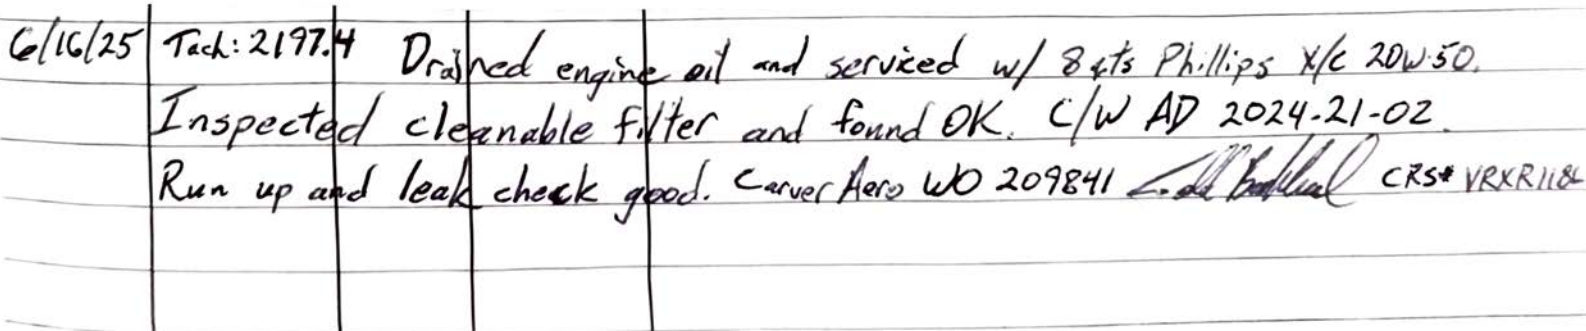 6/16/25 Tach: 2197.4 Drained engine oil and serviced w/ 8 qts Phillips X/C 20W-50.
Inspected cleanable filter and found OK. C/W AD 2024-21-02.
Run up and leak check good. Carver Aero WO 209841 CRS# VRXR118L